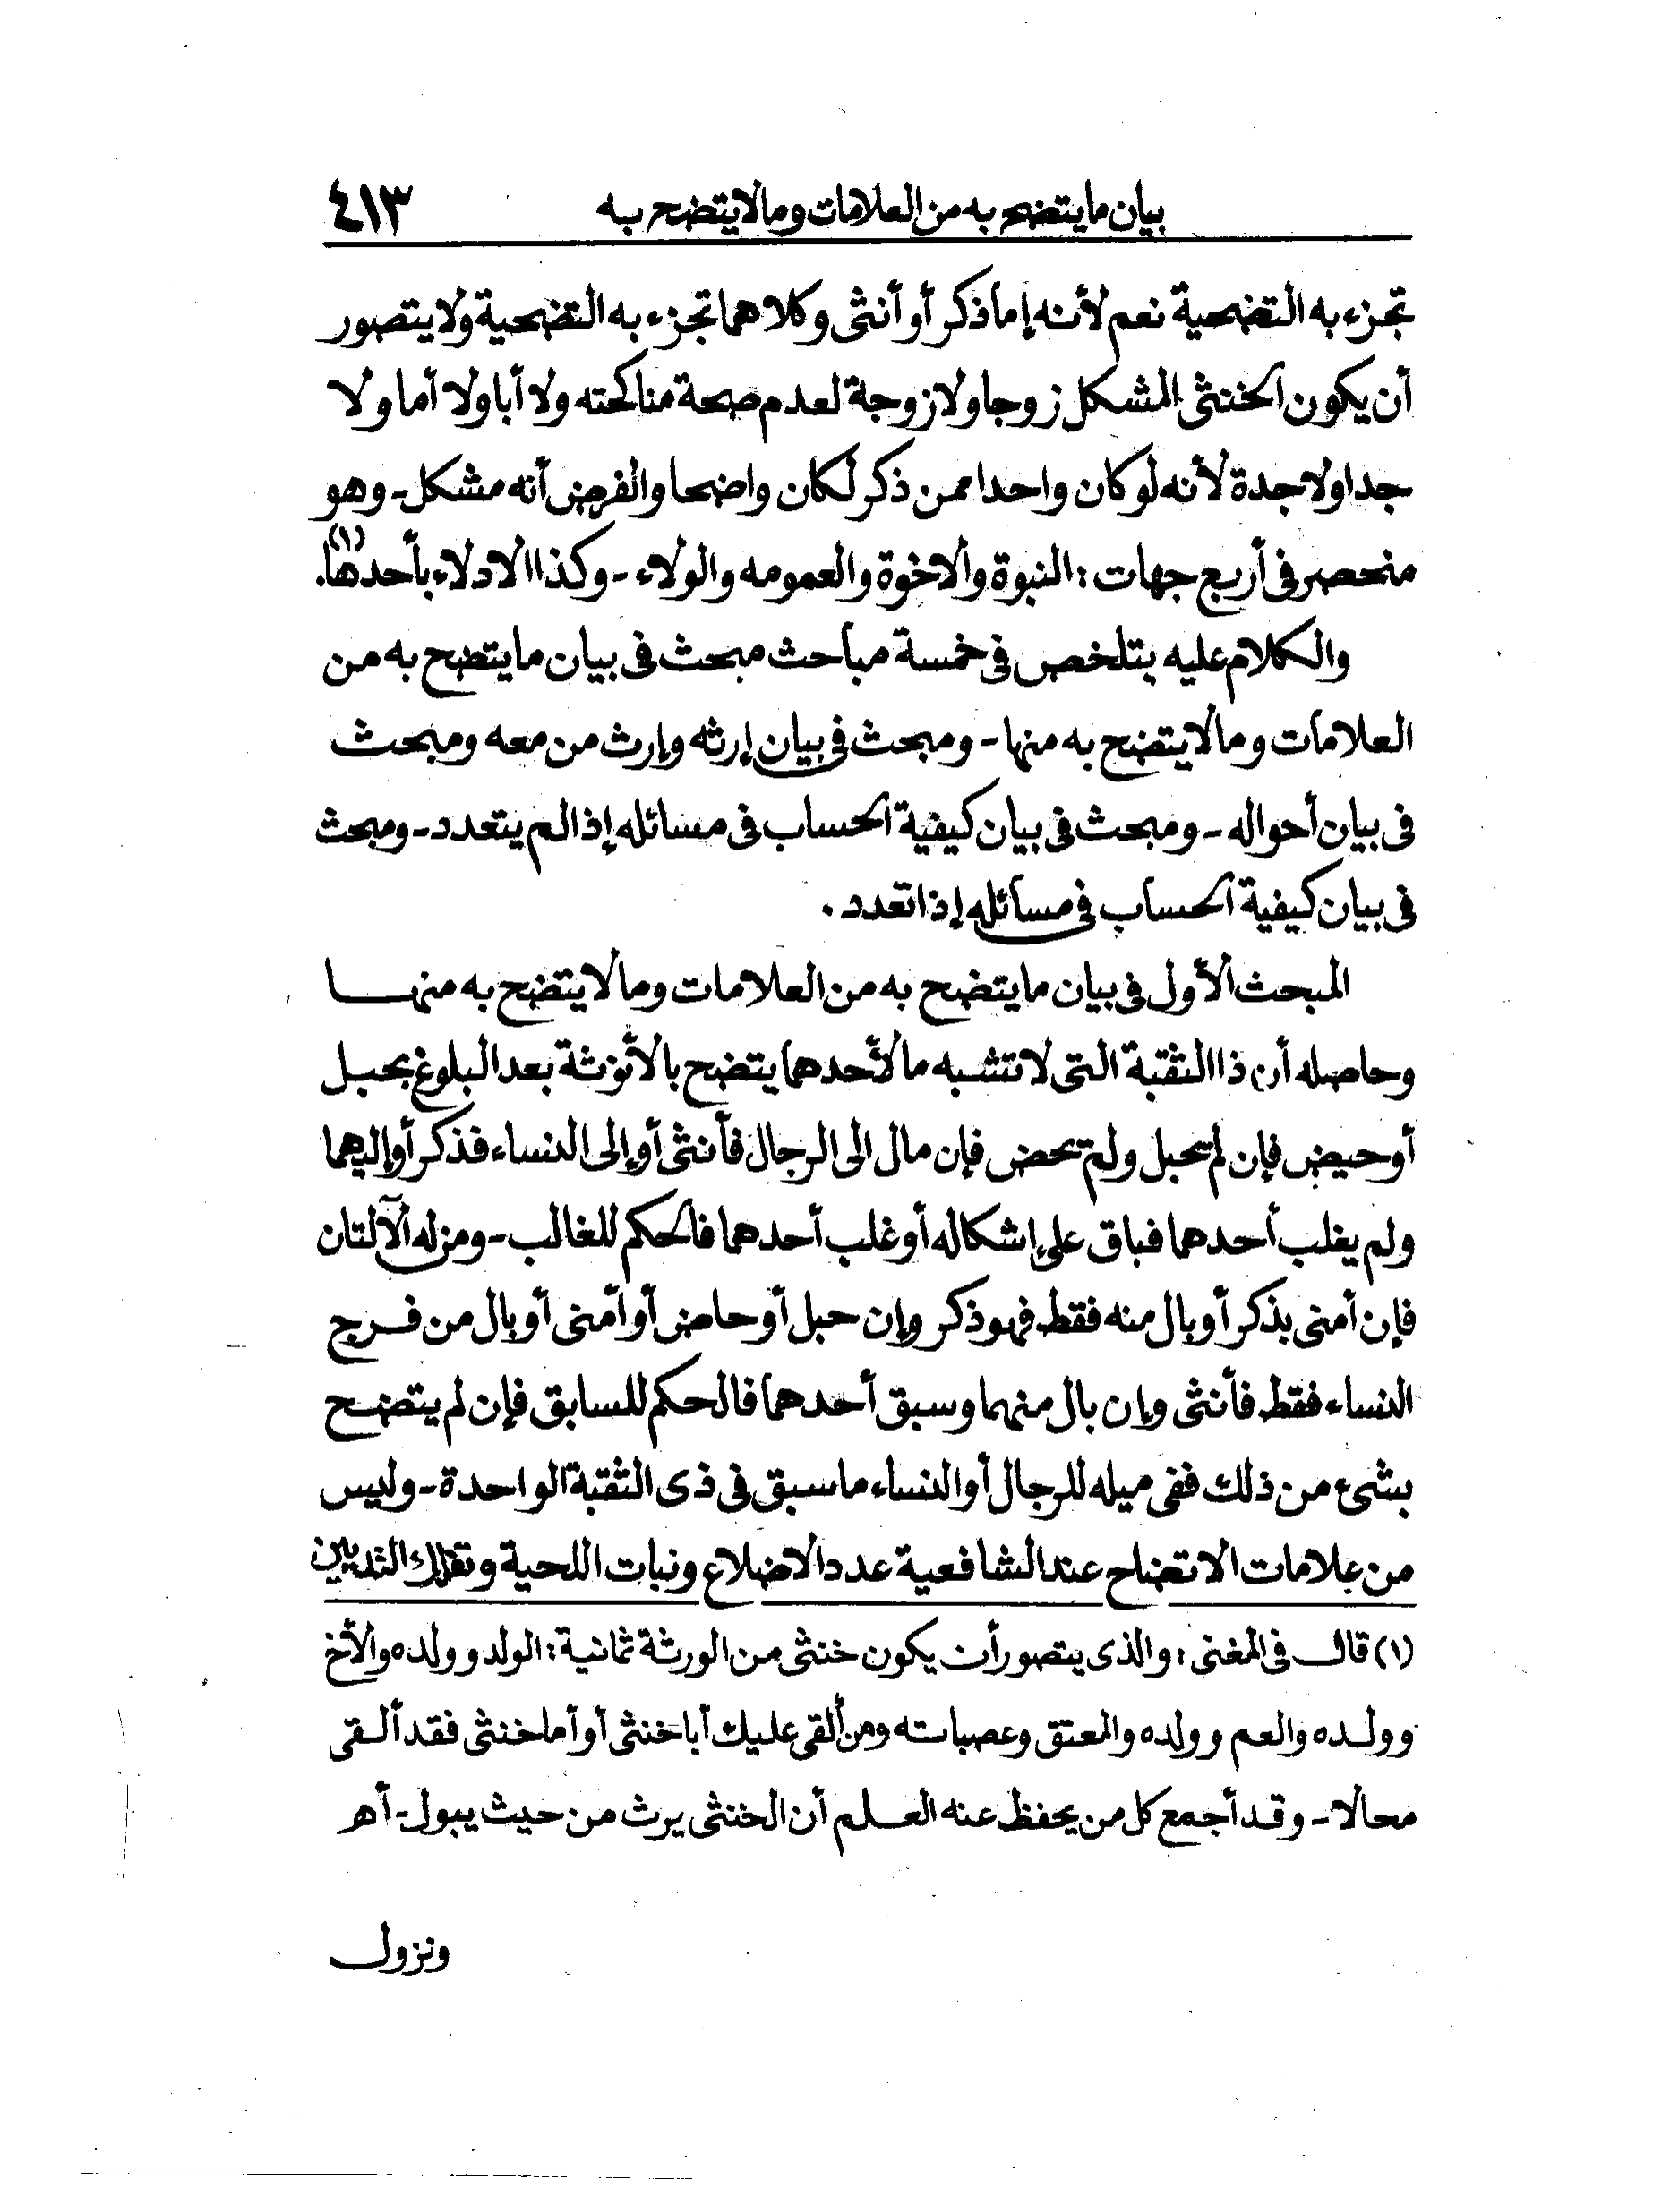 بيان ما يتضح به من العلامات وما لا يتضح به ٤١٣
تجزء به التضحية نعم لأنه إما ذكر أو أنثى وكلاهما تجزء به التضحية ولا يتصور
أن يكون الخنثى المشكل زوجا ولا زوجة لعدم صحة مناكحته ولا أبا ولا أما ولا
جدا ولا جدة لأنه لو كان واحدا ممن ذكر لكان واضحا والفرض أنه مشكل - وهو
منحصر فى أربع جهات : النبوة والاخوة والعمومه والولاء - وكذا الادلاء بأحدها (١).
والكلام عليه يتلخص فى خمسة مباحث مبحث فى بيان ما يتضح به من
العلامات وما لا يتضح به منها - ومبحث فى بيان إرثه وإرث من معه ومبحث
فى بيان أحواله - ومبحث فى بيان كيفية الحساب فى مسائله إذا لم يتعدد - ومبحث
فى بيان كيفية الحساب فى مسائله إذا تعدد .
المبحث الأول فى بيان ما يتضح به من العلامات وما لا يتضح به منها
وحاصله أن ذا الثقبة التى لا تشبه ما لأحدهما يتضح بالأنوثة بعد البلوغ بحبل
أو حيض فإن لم تحبل ولم تحض فإن مال الى الرجال فأنثى أو إلى النساء فذكر أو إليهما
ولم يغلب أحدهما فباق على إشكاله أو غلب أحدهما فالحكم للغالب - ومن له الآلتان
فإن أمنى بذكر أو بال منه فقط فهو ذكر وإن حبل أو حاض أو أمنى أو بال من فرج
النساء فقط فأنثى وإن بال منهما وسبق أحدهما فالحكم للسابق فإن لم يتضح
بشئ من ذلك ففى ميله للرجال أو النساء ما سبق فى ذى الثقبة الواحدة - وليس
من علامات الاتضاح عند الشافعية عدد الاضلاع ونبات اللحية وتفلك الثديين
(١) قال فى المغنى : والذى يتصور أن يكون خنثى من الورثة ثمانية : الولد وولده والأخ
وولده والعم وولده والمعتق وعصباته ومن ألقى عليك أبا خنثى أو أما خنثى فقد ألقى
محالا - وقد أجمع كل من يحفظ عنه العلم أن الخنثى يرث من حيث يبول - أهـ
ونزول